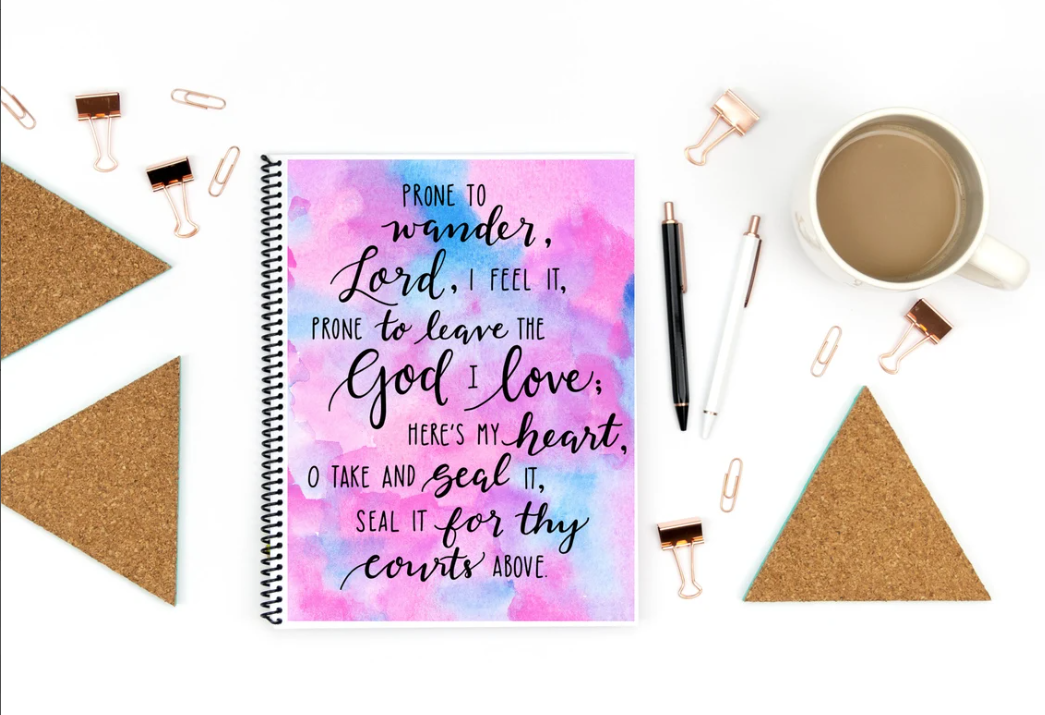 PRONE TO
wander,
Lord, I FEEL IT,
PRONE to leave THE
God I love;
HERE'S MY heart,
O TAKE AND seal IT,
SEAL IT for thy
courts ABOVE.